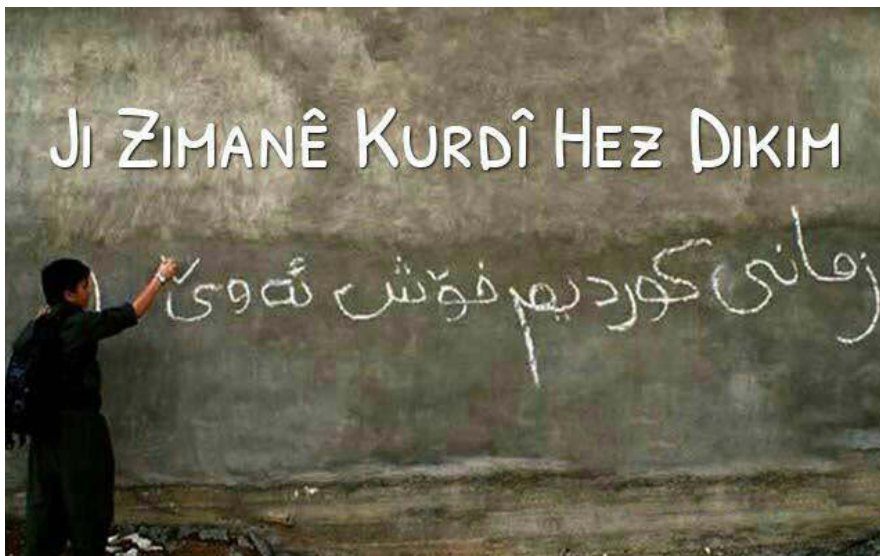 Ji Zimanê Kurdî Hez Dikim
زمانی کوردیم خۆش ئەوێ